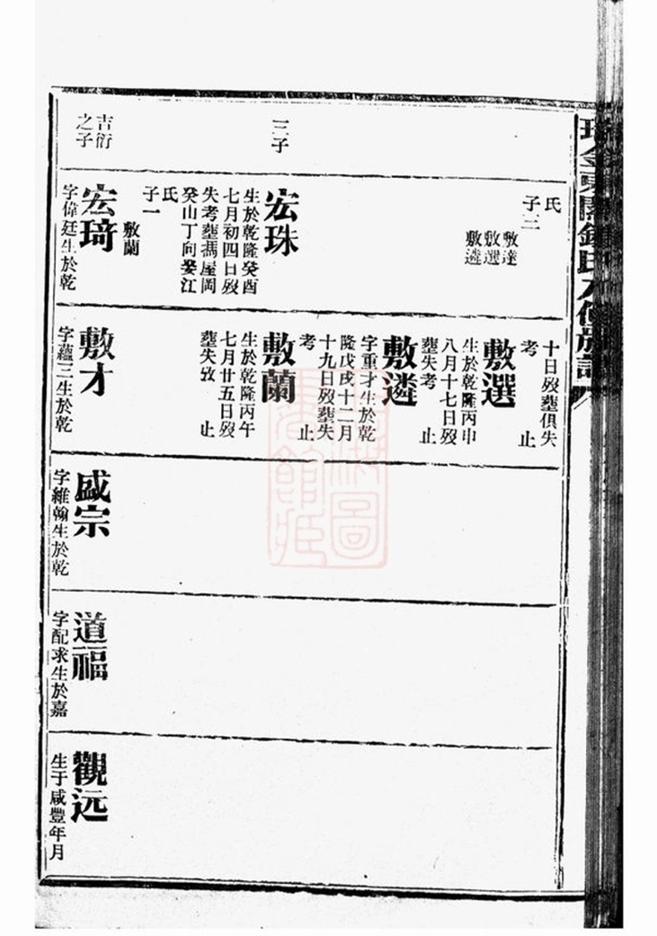 瑞金東關鍾氏修族譜
三子
吉衍
之子
氏
子三
敷達
敷選
敷遴
宏珠
生於乾隆癸酉
七月初四日歿
失考塟獁屋岡
癸山丁向娶江
氏
子一
敷蘭
宏琦
字偉廷生於乾
十日歿塟俱失
考 止
敷選
生於乾隆丙申
八月十七日歿
塟失考 止
敷遴
字重才生於乾
隆戊戌十二月
十九日歿塟失
考 止
敷蘭
生於乾隆丙午
七月廿五日歿
塟失攷 止
敷才
字蘊三生於乾
盛宗
字維翰生於乾
道福
字配求生於嘉
觀远
生于咸豐年月